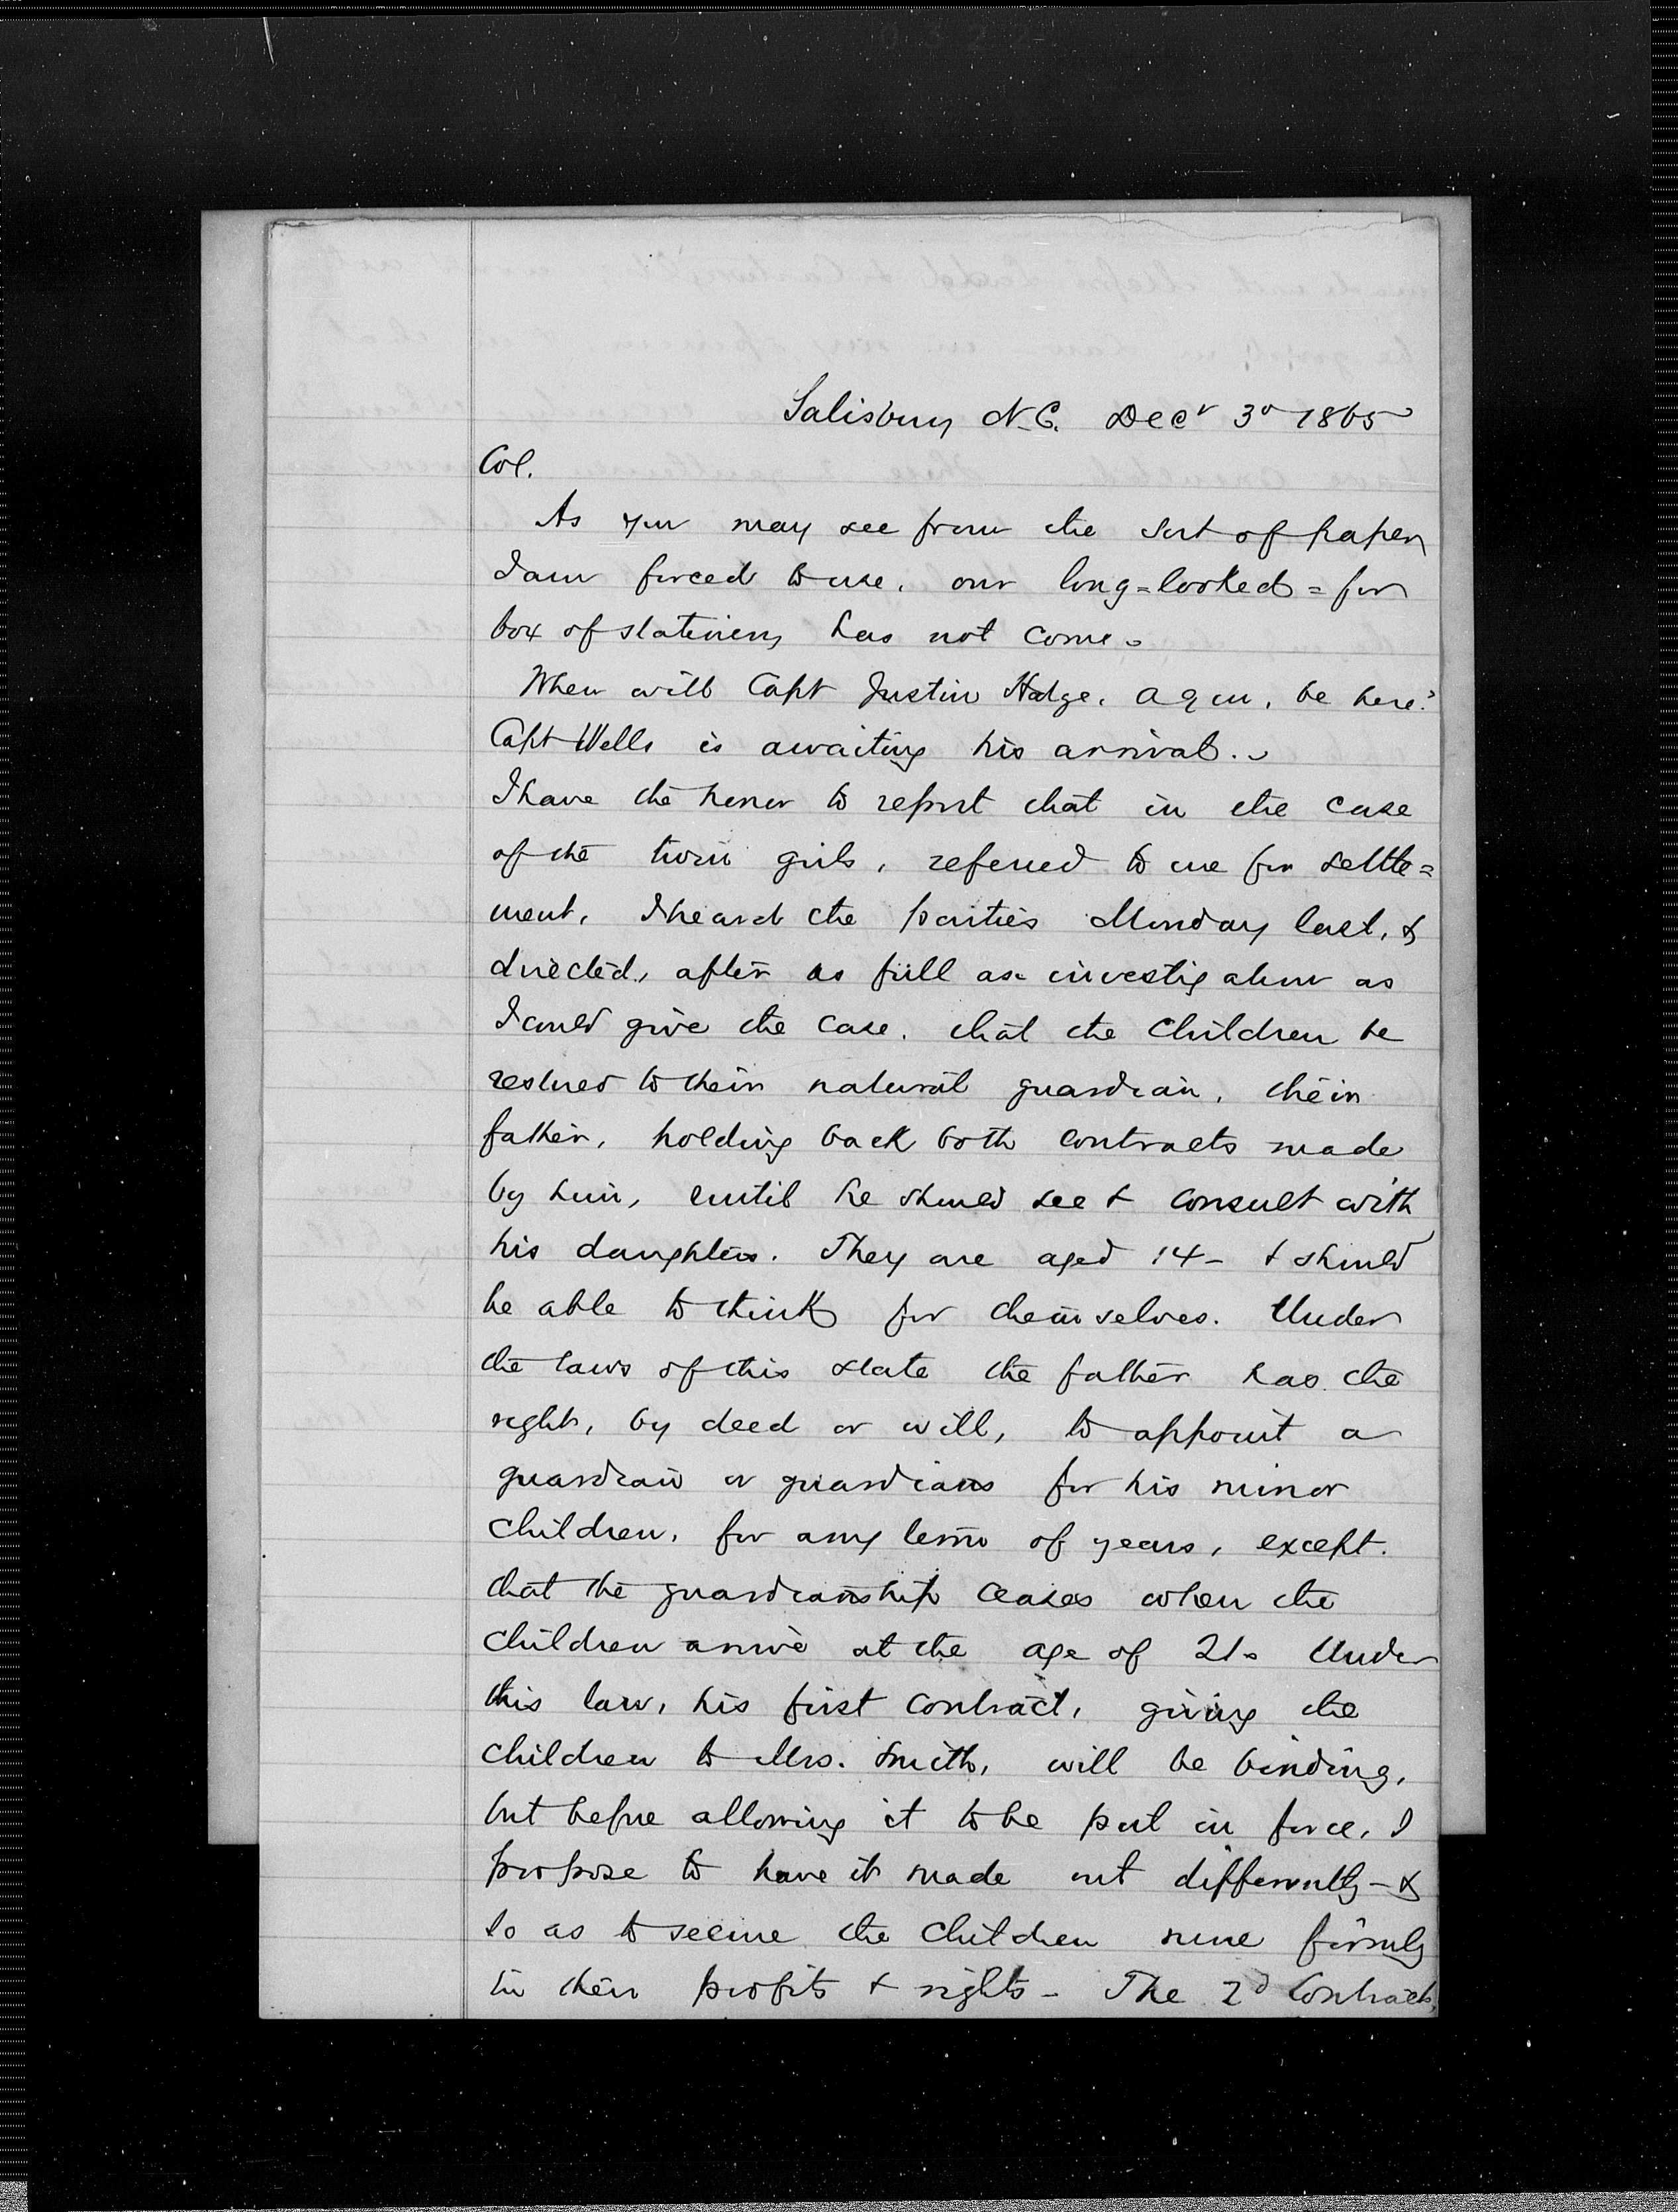 Salisbury N.C. Decr 3d 1865
Col.
As you may see from the sort of paper
I am forced to use, our long=looked=for
box of stationery has not come.
When will Capt Justin Hodge, a q m, be here?
Capt Wells is awaiting his arrival.
I have the honor to report that in the case
of the twin girls, referred to me for settle=
ment, I heard the parties Monday last, &
directed, after as full an investigation as
I could give the case, that the children be
restored to their natural guardian, their
father, holding back both contracts made
by him, until he should see & consult with
his daughters. They are aged 14- & should
be able to think for themselves. Under
the laws of this state the father has the
right, by deed or will, to appoint a
guardian or guardians for his minor
children, for any term of years, except
that the guardianship ceases when the
children arrive at the age of 21. Under
this law, his first contract, giving the
children to Mrs. Smith, will be binding,
but before allowing it to be put in force, I
propose to have it made out differently - &
so as to secure the children more firmly
in their profits & rights - The 2d Contract,